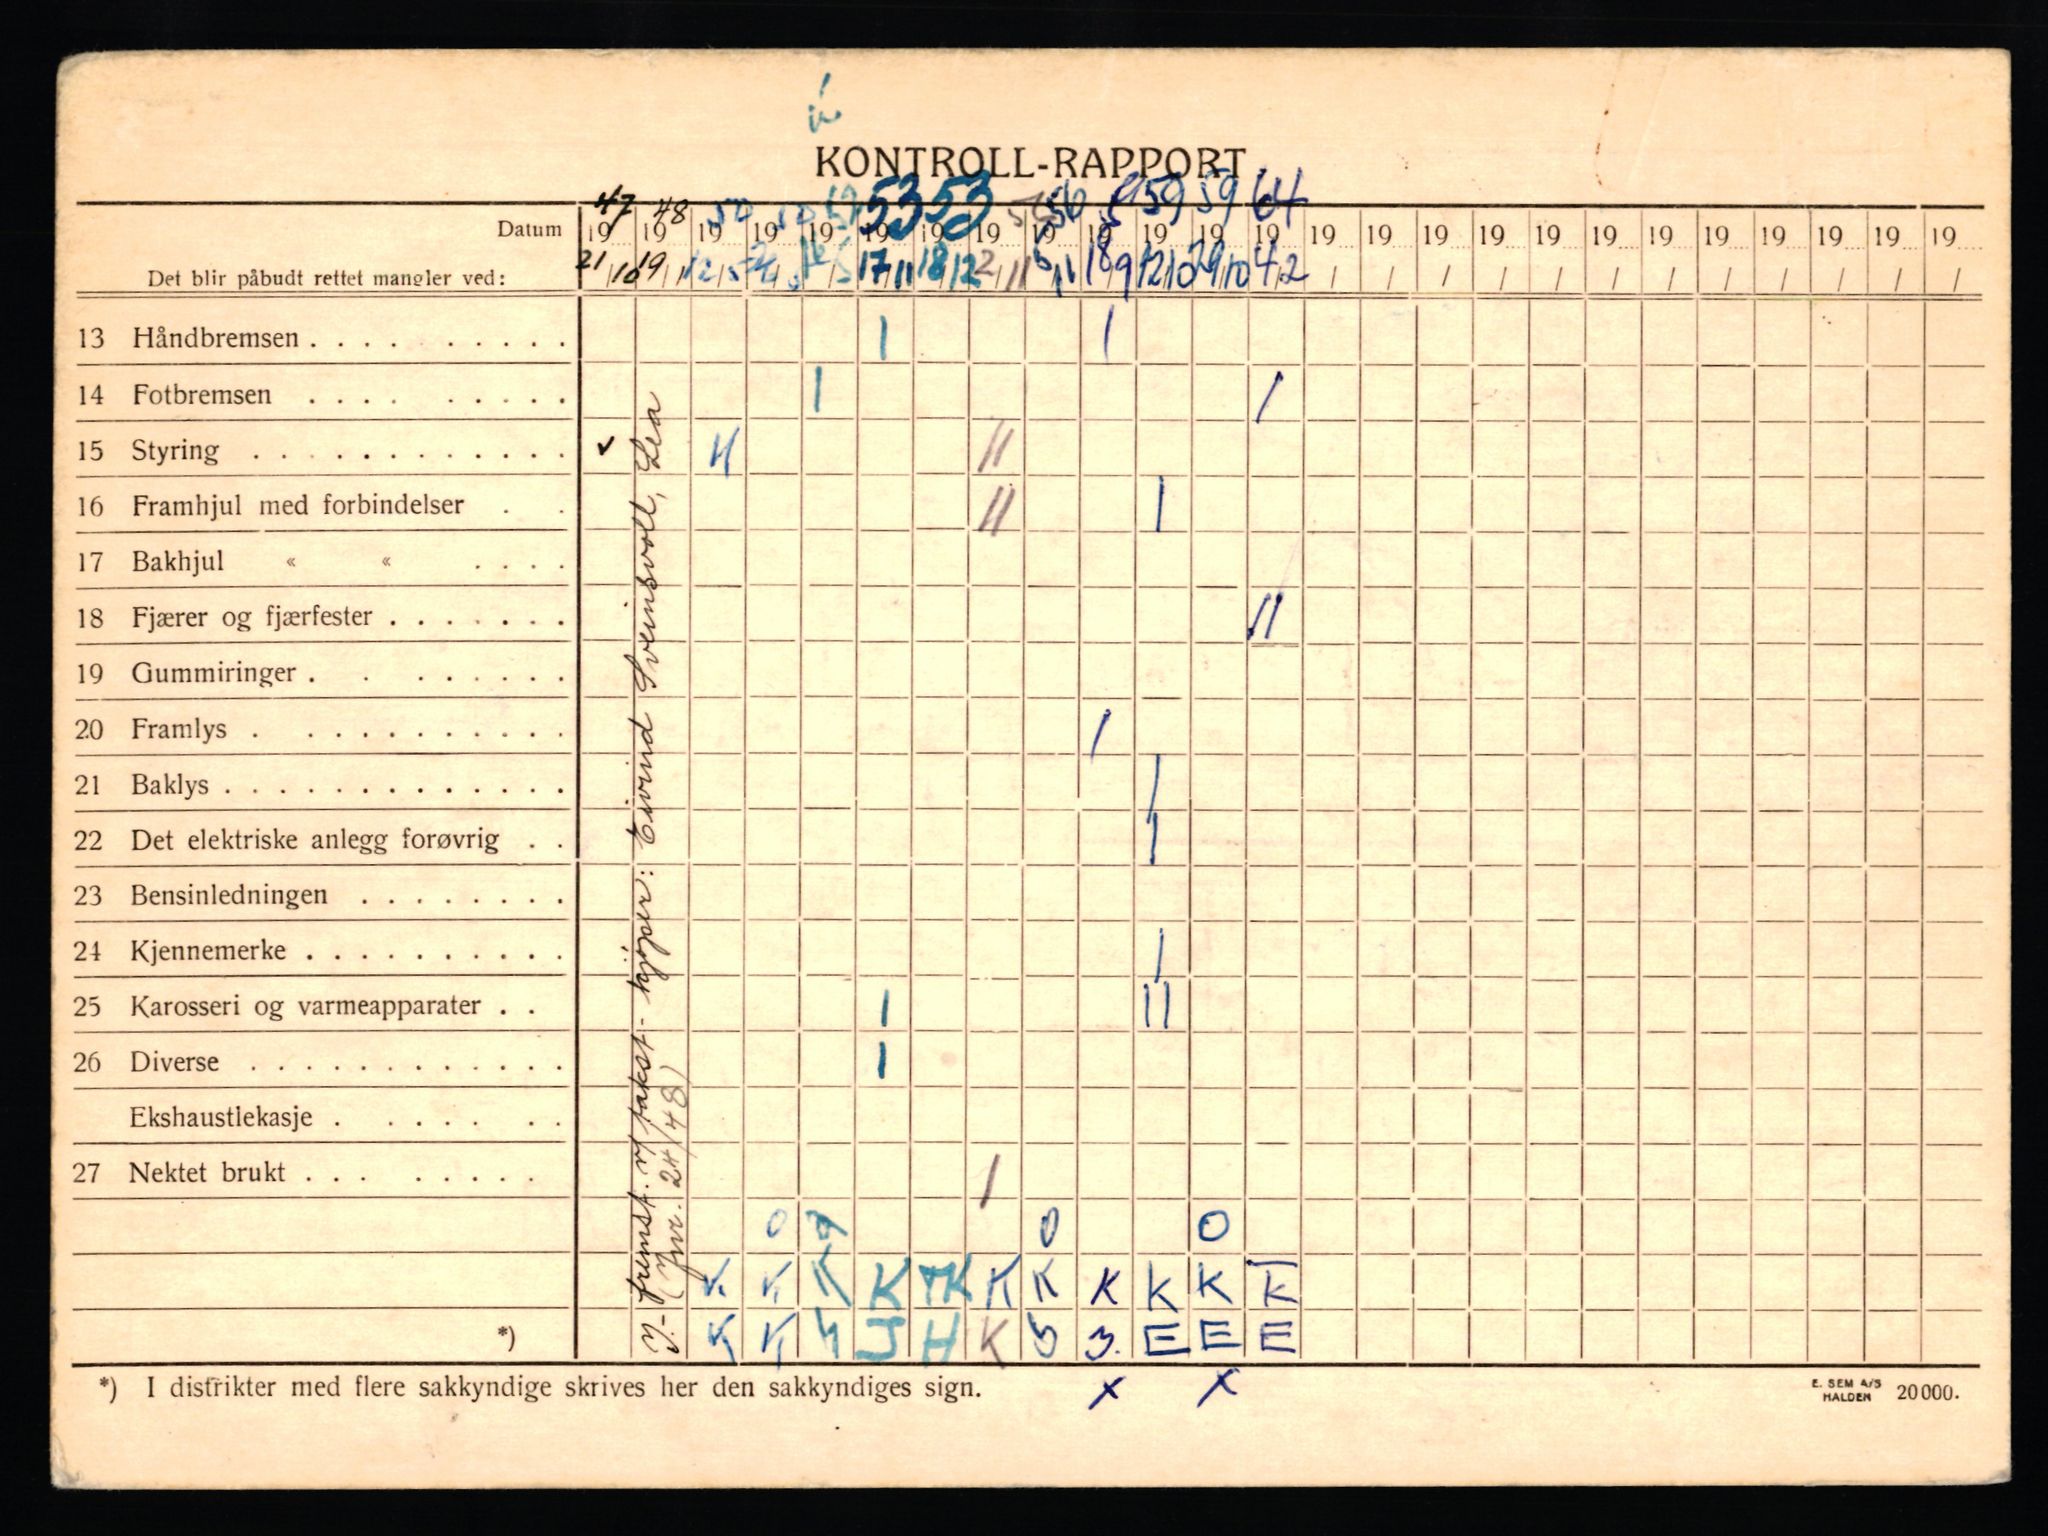 KONTROLL-RAPPORT
47 48 50 50 53 53 56 59 59 64
Datum 19 19 19 19 19 19 19 19 19 19 19 19 19 19 19 19 19 19 19 19 19 19 19 19 19
Det blir påbudt rettet mangler ved: 21/10 19/1 17/11 18/12 2/11 6/11 18/9 12/10 29/10 4/2 / / / / / / / / / / / /
13 Håndbremsen . . . . . . . . . 1 1
14 Fotbremsen . . . . . . . . . 1 1
15 Styring . . . . . . . . . . . . ✓ 11 11
16 Framhjul med forbindelser . . 11 1
17 Bakhjul « « . . . .
18 Fjærer og fjærfester . . . . . . . 11
19 Gummiringer . . . . . . . .
20 Framlys . . . . . . . . . . . 1
21 Baklys . . . . . . . . . . . . . 1
22 Det elektriske anlegg forøvrig . . 1
23 Bensinledningen . . . . . . . .
24 Kjennemerke . . . . . . . . . . 1
25 Karosseri og varmeapparater . . 1 11
26 Diverse . . . . . . . . . . . . 1
Ekshaustlekasje . . . . . . .
27 Nektet brukt . . . . . . . 1
0 0 0
K. K K K K K K K K K
*) K K J H K 3 3. E E E
y.- fremst. v/ takst - kjøper: Eivind Sveinsvoll, Lea
(Jnr. 24/48)
*) I distrikter med flere sakkyndige skrives her den sakkyndiges sign. x x
E. SEM A/S
HALDEN 20000.